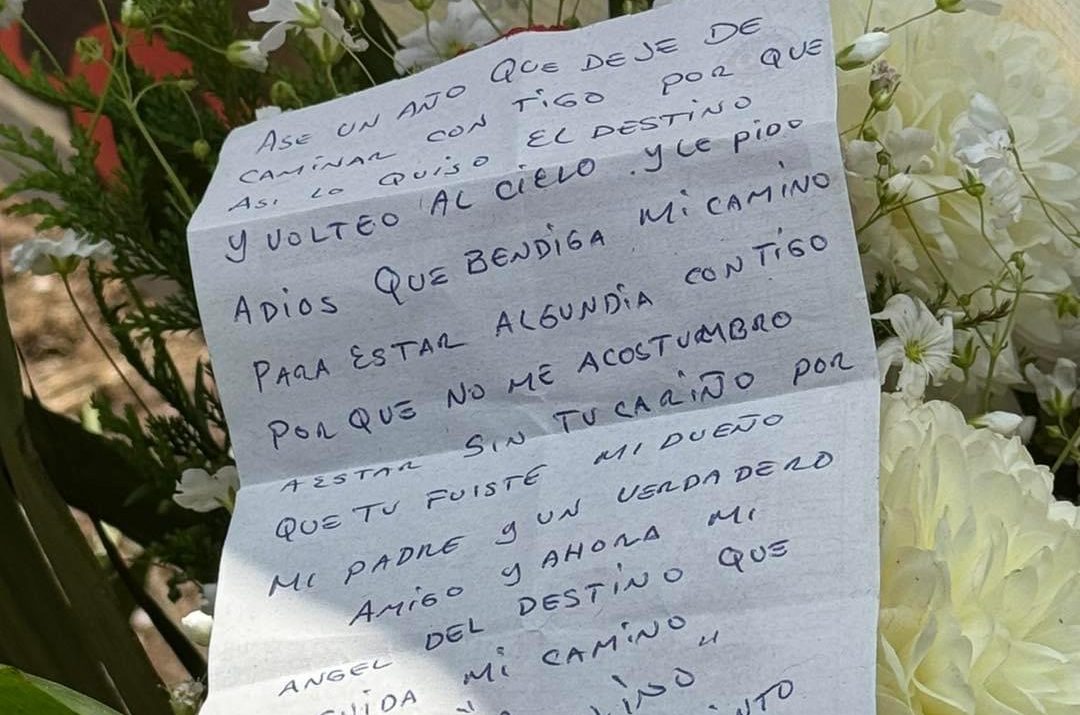 ASE UN AÑO QUE DEJE DE
CAMINAR CON TIGO POR QUE
ASI LO QUISO EL DESTINO
Y VOLTEO AL CIELO . Y LE PIDO
ADIOS QUE BENDIGA MI CAMINO
PARA ESTAR ALGUNDIA CONTIGO
POR QUE NO ME ACOSTUMBRO
A ESTAR SIN TU CARIÑO POR
QUE TU FUISTE MI DUEÑO
MI PADRE Y UN VERDADERO
AMIGO Y AHORA MI
ANGEL DEL DESTINO QUE
MI CAMINO